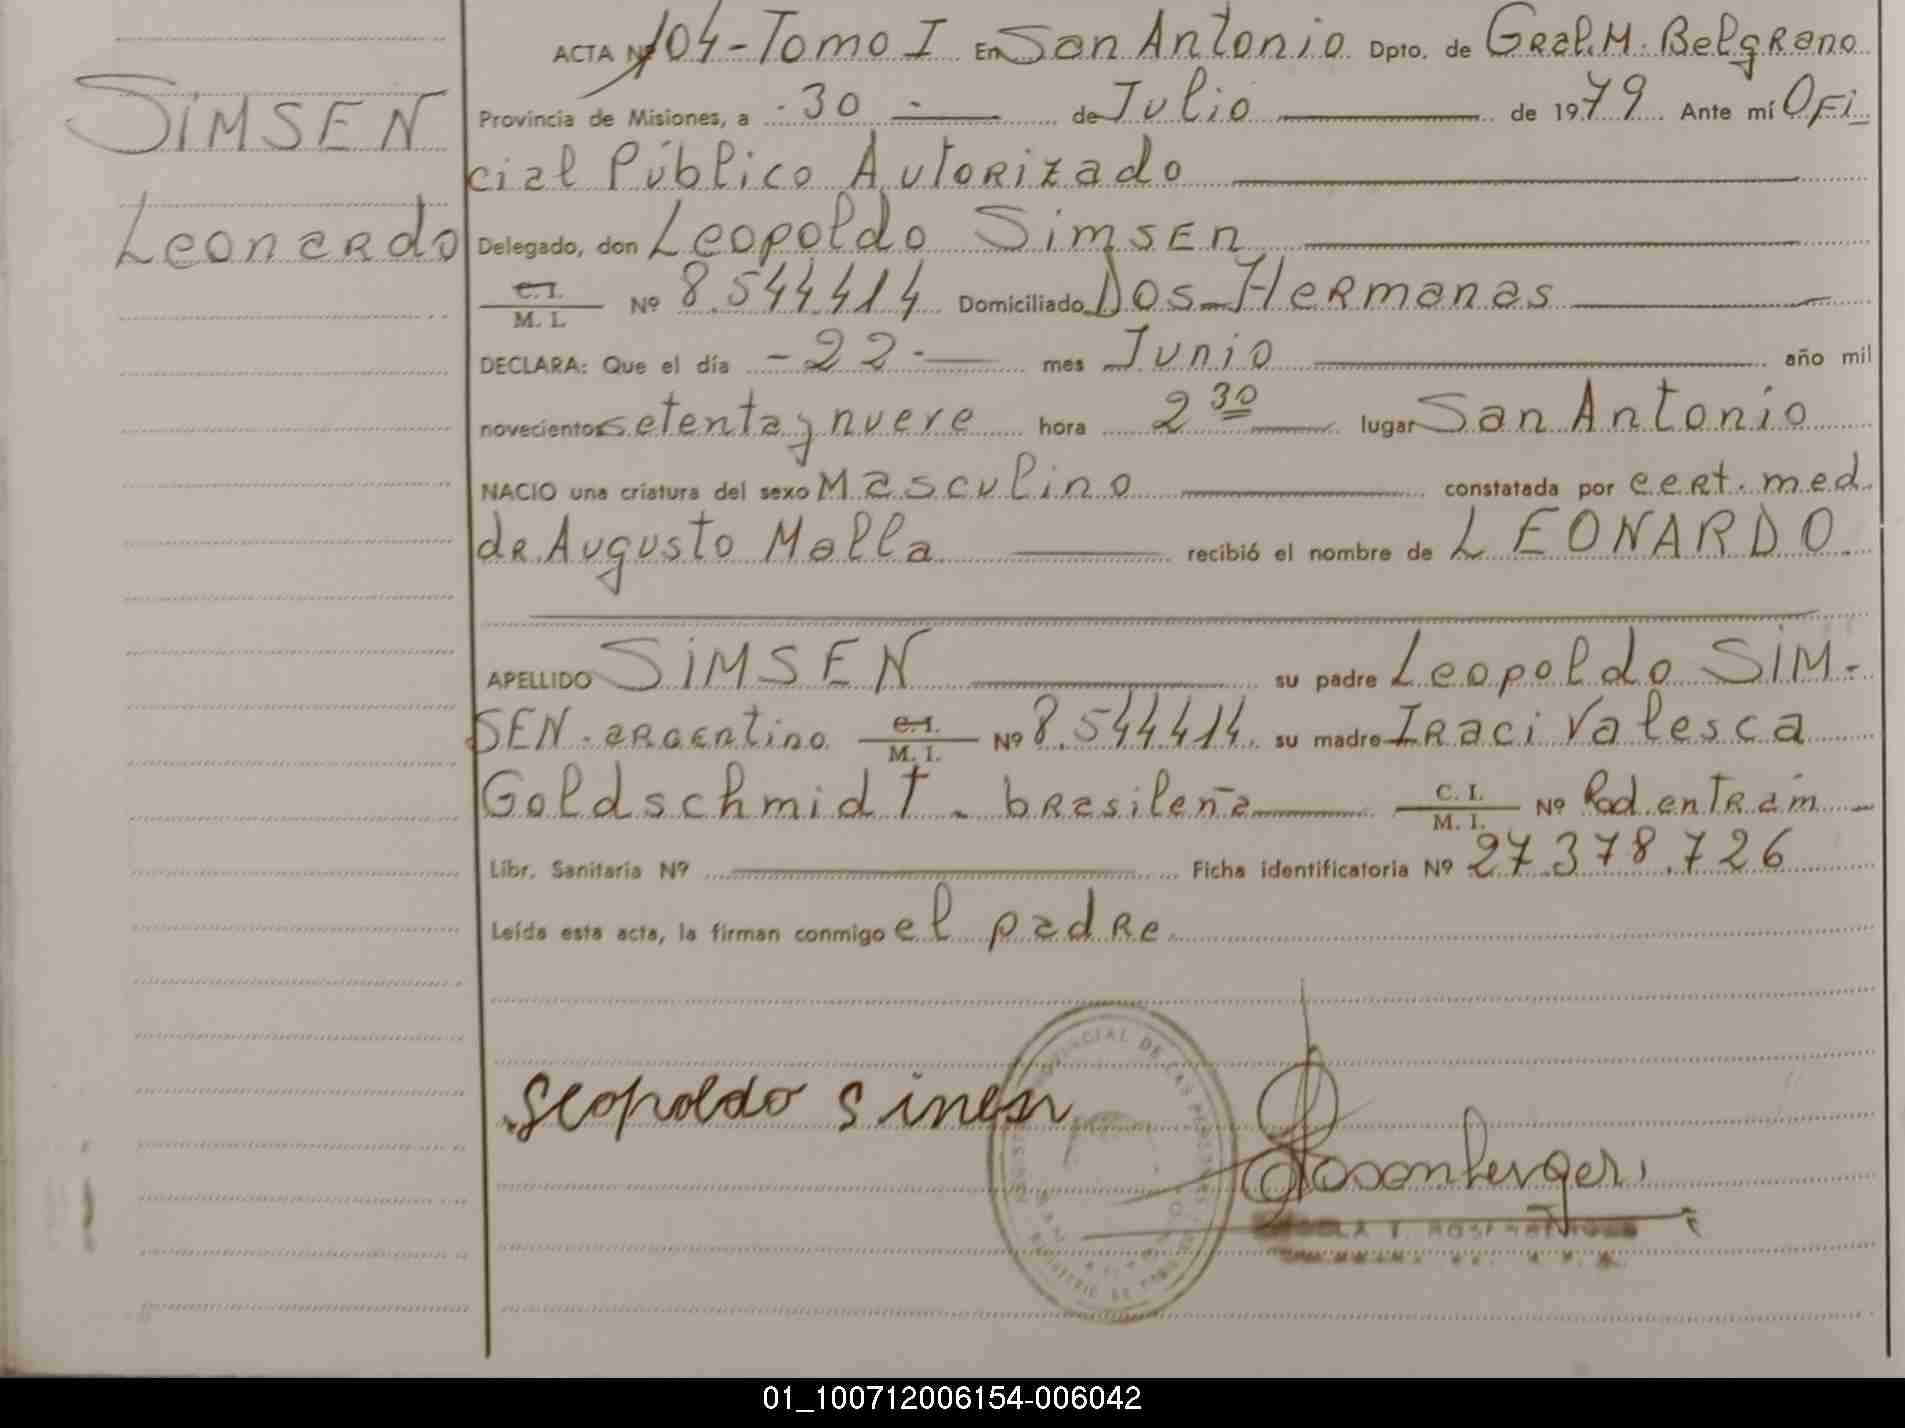 SIMSEN
Leonardo
ACTA Nº 104 - Tomo I En San Antonio Dpto. de Gral. M. Belgrano
Provincia de Misiones, a - 30 - de Julio de 1979 Ante mí Ofi
cial Público Autorizado
Delegado, don Leopoldo Simsen
C. I. / M. I. Nº 8.544.414 Domiciliado Dos Hermanas
DECLARA: Que el día - 22 - mes Junio año mil
novecientos setenta y nueve hora 2 30 lugar San Antonio
NACIO una criatura del sexo Masculino constatada por cert. med.
dR. Augusto Molla recibió el nombre de LEONARDO
APELLIDO SIMSEN su padre Leopoldo SIM-
SEN - argentino C. I. / M. I. Nº 8.544.414 su madre Iraci Valesca
Goldschmidt - brasileña C. I. / M. I. Nº Rad. en trám
Libr. Sanitaria Nº Ficha identificatoria Nº 27.378.726
Leída esta acta, la firman conmigo el padre
Leopoldo Simsen
PROVINCIAL DE LAS PERSONAS
Rosenberger
01_100712006154-006042